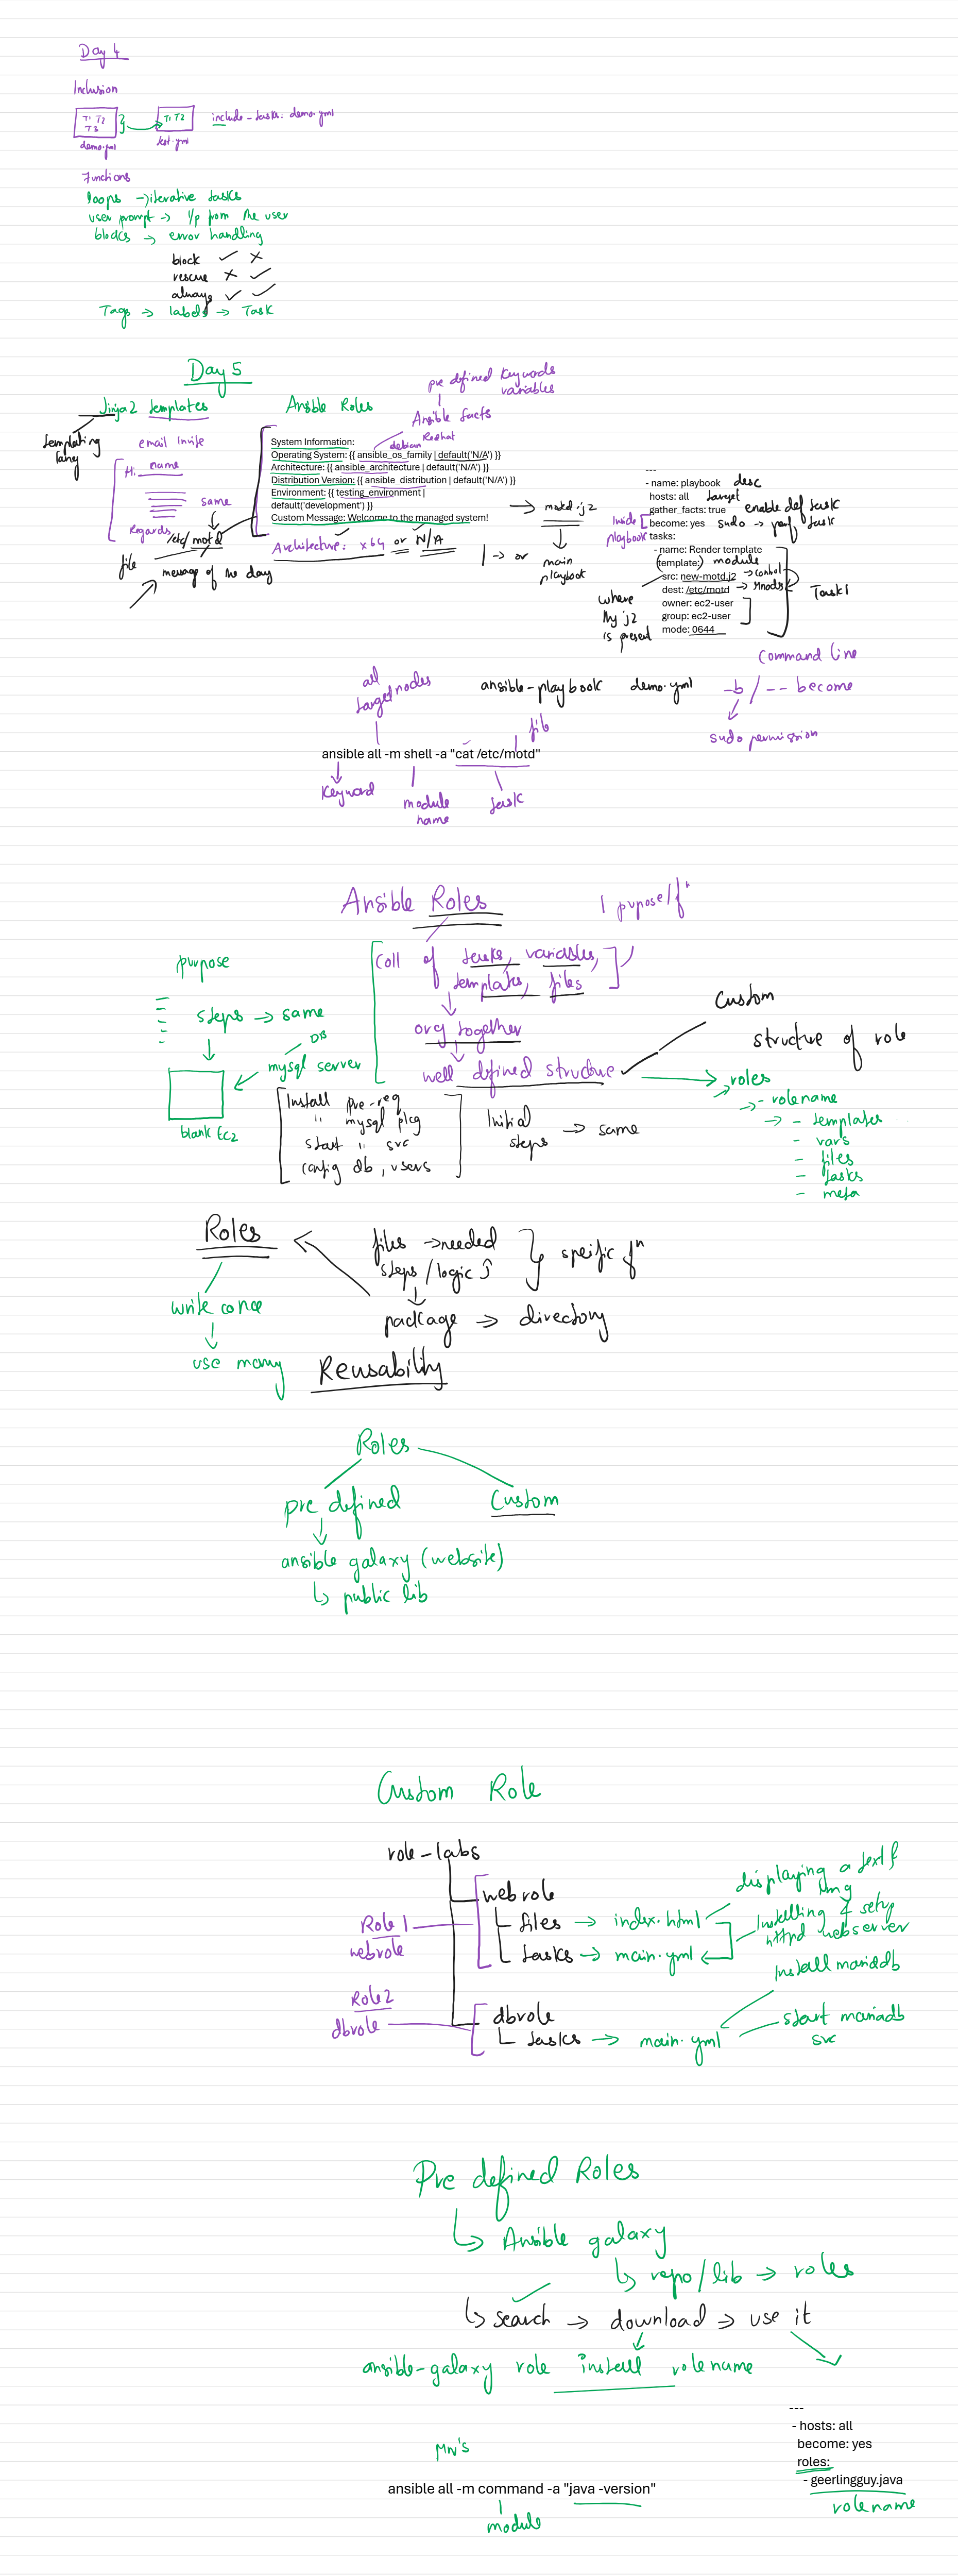 Day 4
Inclusion
T1 T2
T3
demo.yml
T1 T2
test.yml
include-tasks: demo.yml
Functions
loops → iterative tasks
user prompt → i/p from the user
blocks → error handling
block ✓ ×
rescue × ✓
always ✓ ✓
Tags → labels → Task
Day 5
Jinja2 templates
templating
lang
email Invite
Hi name
same
Regards
/etc/motd
file
message of the day
Ansible Roles
pre defined keywords
variables
Ansible facts
debian Redhat
System Information:
Operating System: {{ ansible_os_family | default('N/A') }}
Architecture: {{ ansible_architecture | default('N/A') }}
Distribution Version: {{ ansible_distribution | default('N/A') }}
Environment: {{ testing_environment |
default('development') }}
Custom Message: Welcome to the managed system!
Architecture: x64 or N/A
| → or
→ motd.j2
main
playbook
---
- name: playbook desc
hosts: all target
gather_facts: true enable def task
become: yes sudo → perf task
Inside
playbook
tasks:
- name: Render template
template: module
src: new-motd.j2 → control
dest: /etc/motd → Mnods
owner: ec2-user
group: ec2-user
mode: 0644
Task1
where
my j2
is present
Command line
ansible-playbook demo.yml -b / -- become
sudo permission
all
target nodes
file
ansible all -m shell -a "cat /etc/motd"
Keyword
module
name
task
Ansible Roles
1 pupose/fn
Coll of tasks, variables,
templates, files
org together
well defined structure
Custom
structure of role
roles
- rolename
- templates
- vars
- files
- tasks
- meta
purpose
steps → same
DB
mysql server
blank EC2
Install pre-req
" mysql pkg
start " svc
config db, users
Initial
steps → same
Roles
write once
use many
files → needed
steps/logic
speific fn
package → directory
Reusability
Roles
pre defined
Custom
ansible galaxy (website)
public lib
Custom Role
role-labs
webrole
files → index.html
tasks → main.yml
Role 1
webrole
displaying a text f
img
Installing & setup
httpd webserver
Role2
dbrole
dbrole
tasks → main.yml
Install mariadb
start mariadb
svc
Pre defined Roles
Ansible galaxy
repo/lib → roles
search → download → use it
ansible-galaxy role install rolename
---
- hosts: all
become: yes
roles:
- geerlingguy.java
rolename
MN's
ansible all -m command -a "java -version"
module